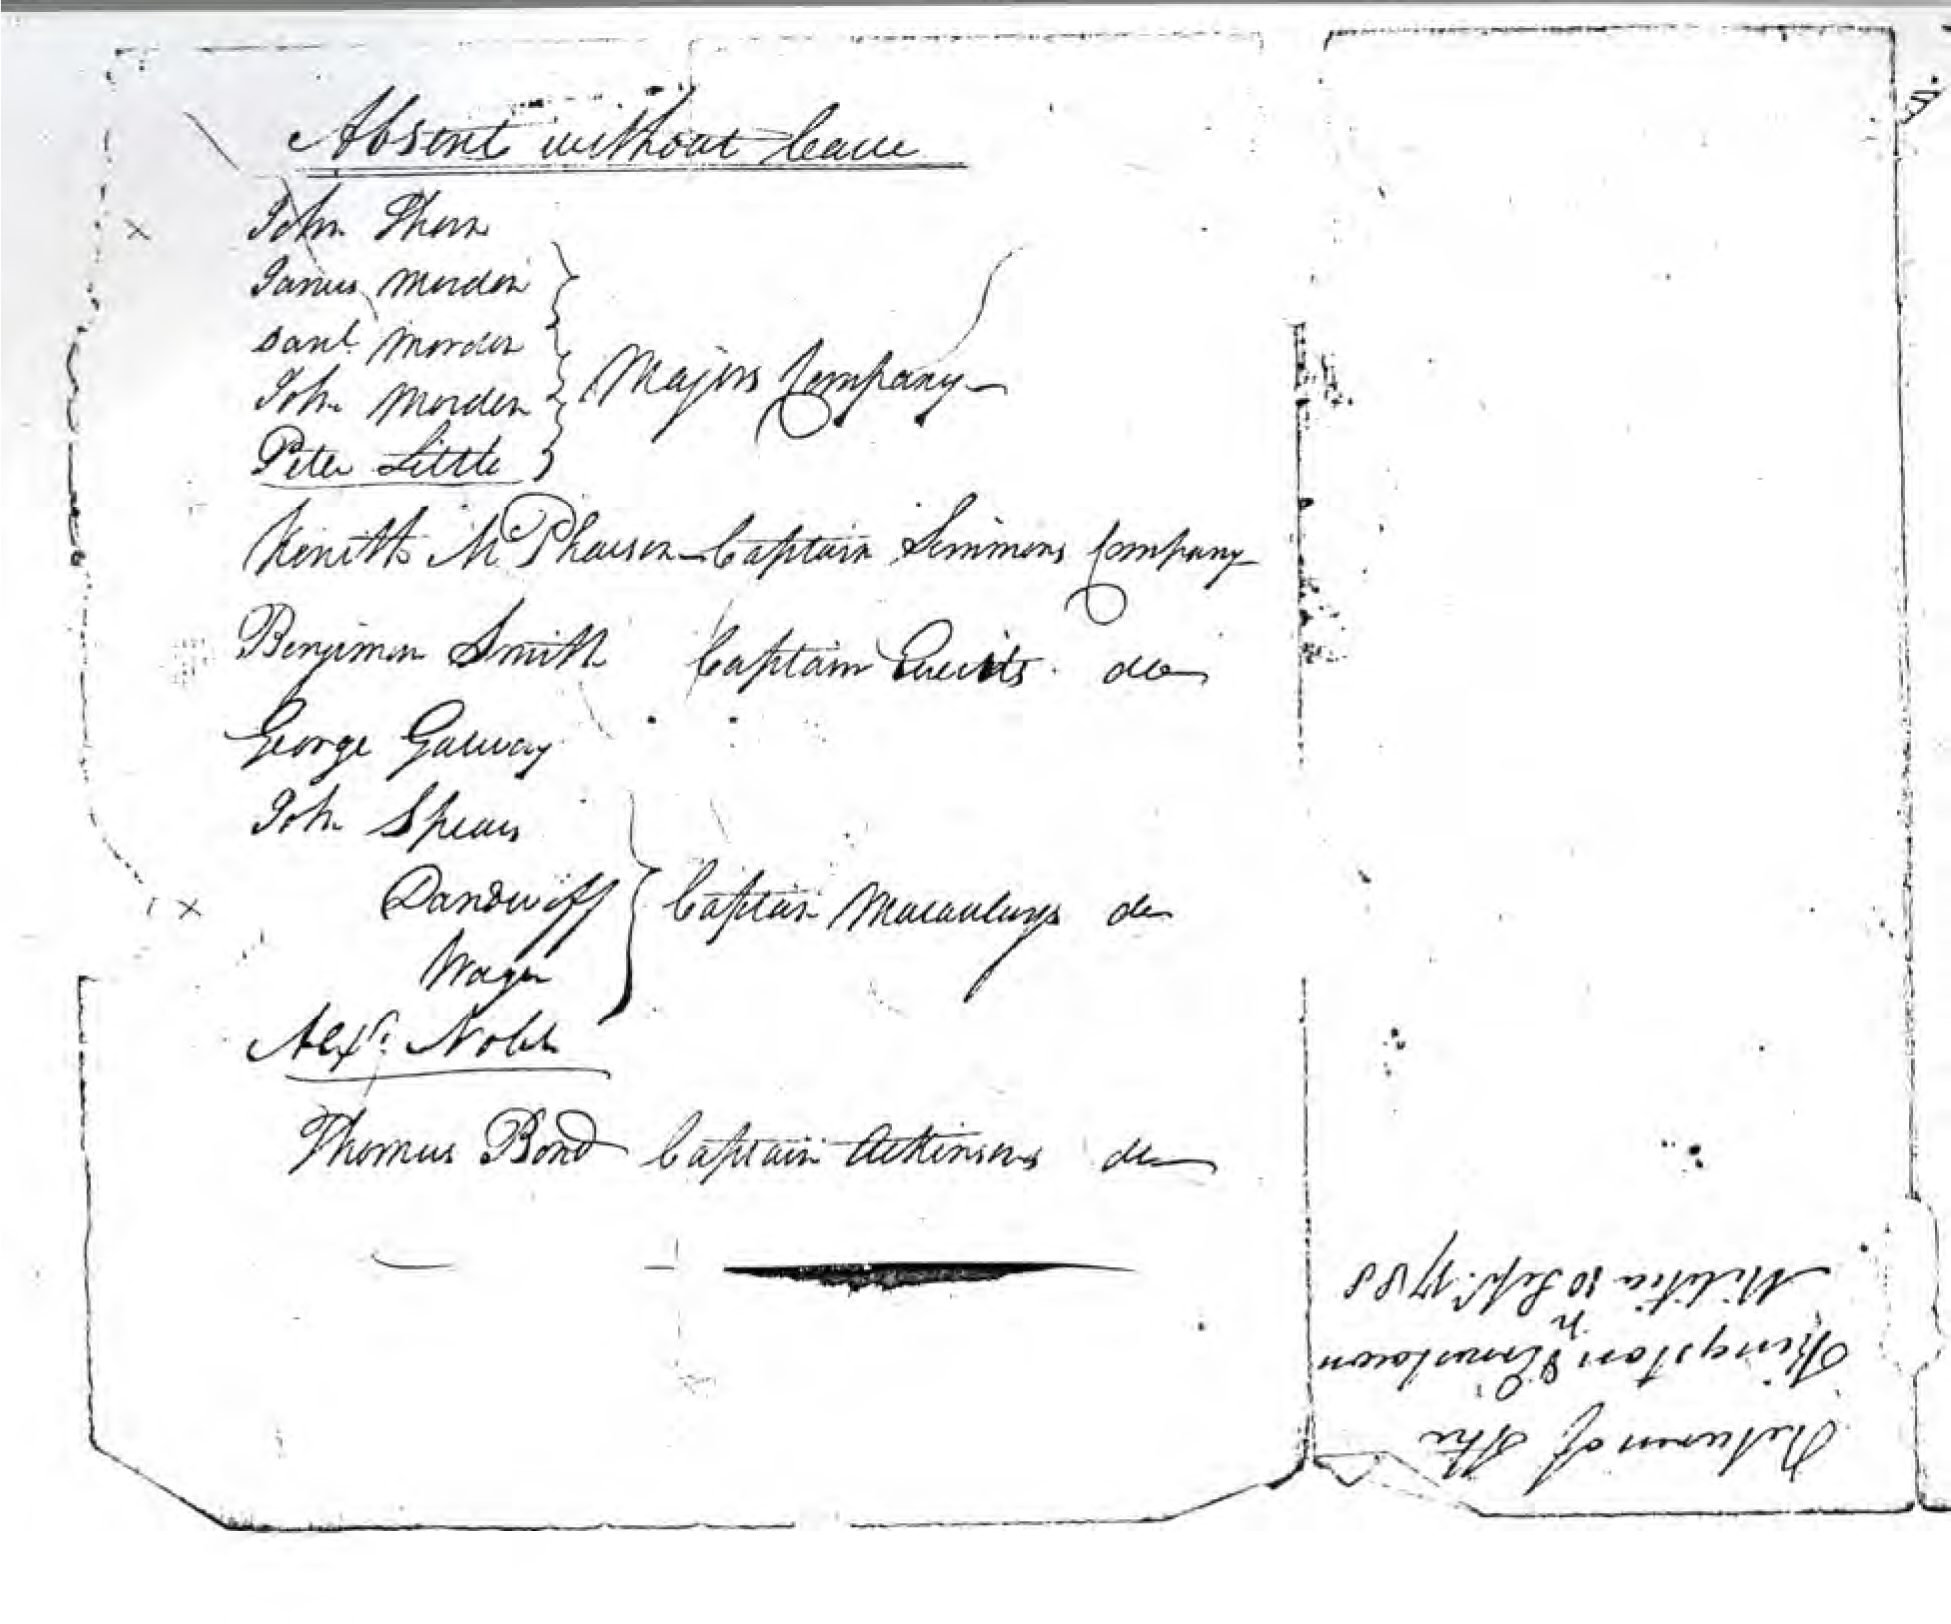 Absent without leave
John Thorn
James Morden
Saml. Morden
John Morden
Majors Company
Peter Little
Kenith McPharson Captain Simmons Company
Benjimen Smith Captain do
George Galway
John Spears
Dandwiff Captain Macaulays do
Wager
Alexr. Noble
Thomas Bond Captain Atkinsons do
Return of the
Kingston & Ernestown
Militia 10 Sept. 1788